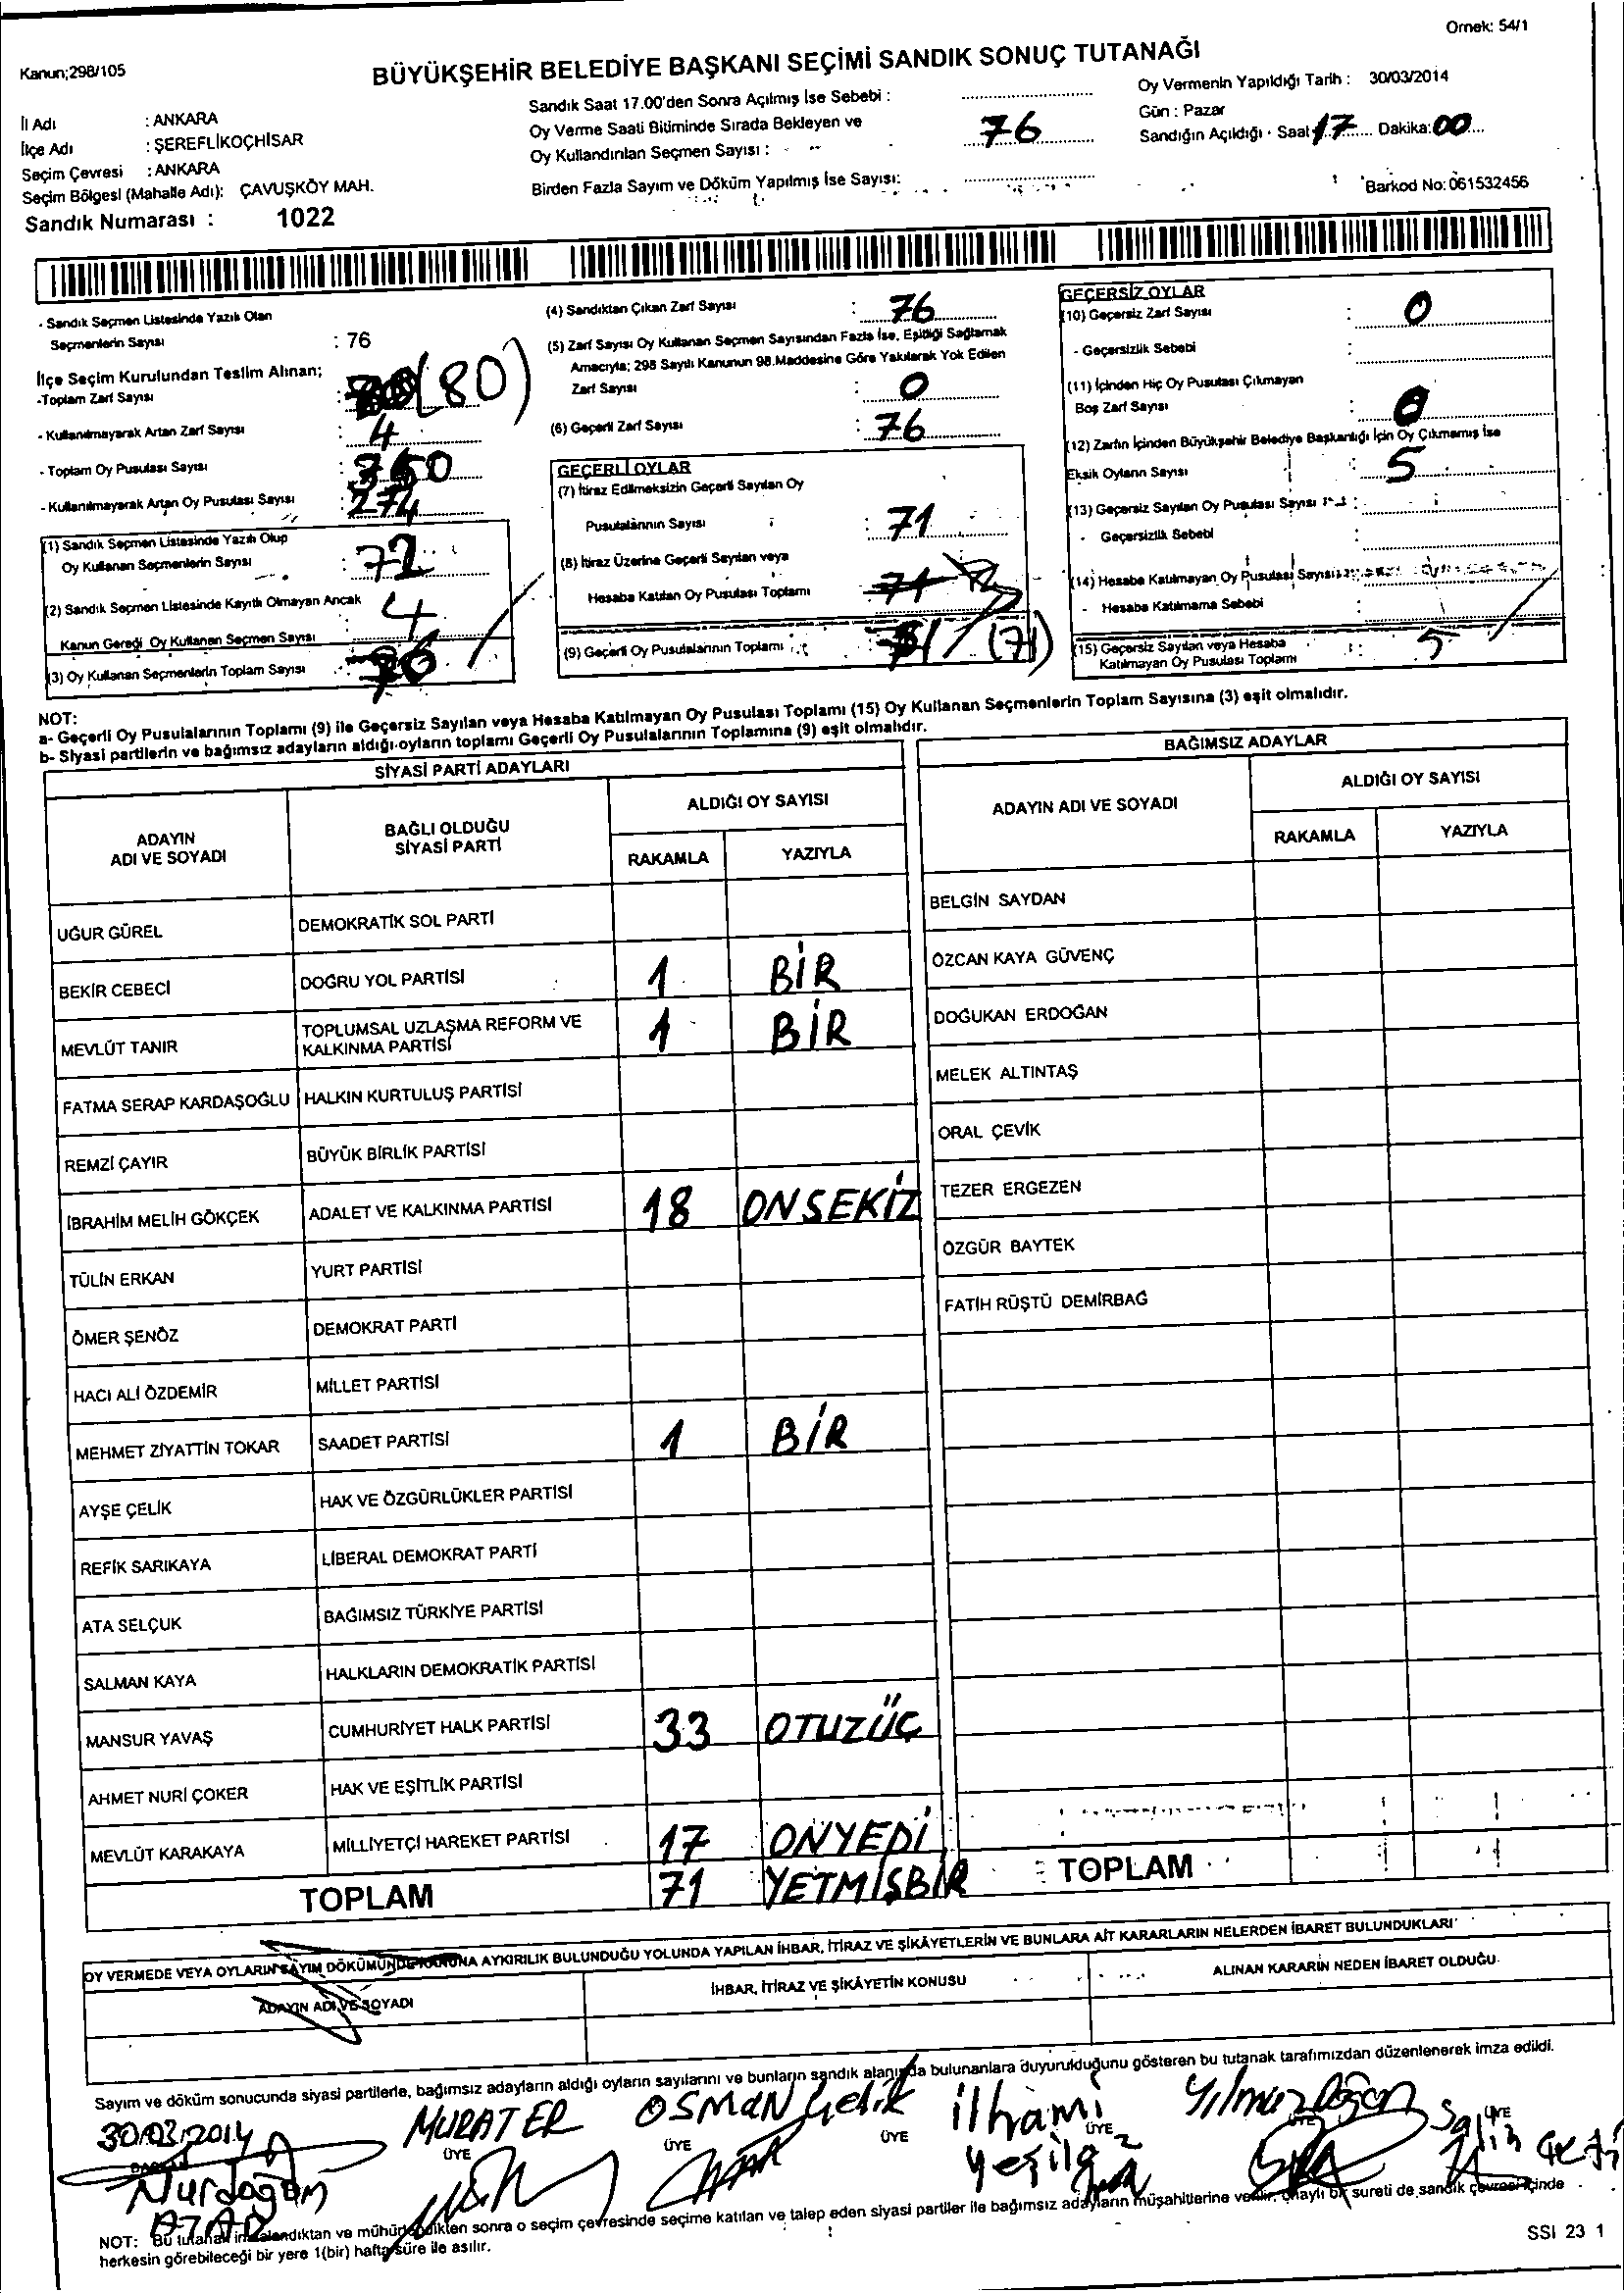 Örnek: 54/1
Kanun;298/105
BÜYÜKŞEHİR BELEDİYE BAŞKANI SEÇİMİ SANDIK SONUÇ TUTANAĞI
İl Adı : ANKARA
İlçe Adı : ŞEREFLİKOÇHİSAR
Seçim Çevresi : ANKARA
Seçim Bölgesi (Mahalle Adı): ÇAVUŞKÖY MAH.
Sandık Numarası : 1022
Sandık Saat 17.00'den Sonra Açılmış İse Sebebi :
Oy Verme Saati Bitiminde Sırada Bekleyen ve
Oy Kullandırılan Seçmen Sayısı : 76
Birden Fazla Sayım ve Döküm Yapılmış İse Sayısı:
Oy Vermenin Yapıldığı Tarih : 30/03/2014
Gün : Pazar
Sandığın Açıldığı - Saat 17 Dakika: 00
Barkod No: 061532456
- Sandık Seçmen Listesinde Yazılı Olan
Seçmenlerin Sayısı : 76
İlçe Seçim Kurulundan Teslim Alınan;
-Toplam Zarf Sayısı : (80)
- Kullanılmayarak Artan Zarf Sayısı : 4
- Toplam Oy Pusulası Sayısı : 350
- Kullanılmayarak Artan Oy Pusulası Sayısı : 274
(1) Sandık Seçmen Listesinde Yazılı Olup
Oy Kullanan Seçmenlerin Sayısı : 72
(2) Sandık Seçmen Listesinde Kayıtlı Olmayan Ancak
Kanun Gereği Oy Kullanan Seçmen Sayısı : 4
(3) Oy Kullanan Seçmenlerin Toplam Sayısı : 76
(4) Sandıktan Çıkan Zarf Sayısı : 76
(5) Zarf Sayısı Oy Kullanan Seçmen Sayısından Fazla İse, Eşitliği Sağlamak
Amacıyla; 298 Sayılı Kanunun 98.Maddesine Göre Yakılarak Yok Edilen
Zarf Sayısı : 0
(6) Geçerli Zarf Sayısı : 76
GEÇERLİ OYLAR
(7) İtiraz Edilmeksizin Geçerli Sayılan Oy
Pusulalarının Sayısı : 71
(8) İtiraz Üzerine Geçerli Sayılan veya
Hesaba Katılan Oy Pusulası Toplamı
(9) Geçerli Oy Pusulalarının Toplamı : (71)
GEÇERSİZ OYLAR
(10) Geçersiz Zarf Sayısı : 0
- Geçersizlik Sebebi :
(11) İçinden Hiç Oy Pusulası Çıkmayan
Boş Zarf Sayısı : 0
(12) Zarfın İçinden Büyükşehir Belediye Başkanlığı İçin Oy Çıkmamış İse
Eksik Oyların Sayısı : 5
(13) Geçersiz Sayılan Oy Pusulası Sayısı :
- Geçersizlik Sebebi :
(14) Hesaba Katılmayan Oy Pusulası Sayısı
- Hesaba Katılmama Sebebi :
(15) Geçersiz Sayılan veya Hesaba
Katılmayan Oy Pusulası Toplamı : 5
NOT:
a- Geçerli Oy Pusulalarının Toplamı (9) ile Geçersiz Sayılan veya Hesaba Katılmayan Oy Pusulası Toplamı (15) Oy Kullanan Seçmenlerin Toplam Sayısına (3) eşit olmalıdır.
b- Siyasi partilerin ve bağımsız adayların aldığı oyların toplamı Geçerli Oy Pusulalarının Toplamına (9) eşit olmalıdır.
SİYASİ PARTİ ADAYLARI
ADAYIN
ADI VE SOYADI
BAĞLI OLDUĞU
SİYASİ PARTİ
ALDIĞI OY SAYISI
RAKAMLA YAZIYLA
UĞUR GÜREL DEMOKRATİK SOL PARTİ
BEKİR CEBECİ DOĞRU YOL PARTİSİ 1 BİR
MEVLÜT TANIR TOPLUMSAL UZLAŞMA REFORM VE
KALKINMA PARTİSİ 1 BİR
FATMA SERAP KARDAŞOĞLU HALKIN KURTULUŞ PARTİSİ
REMZİ ÇAYIR BÜYÜK BİRLİK PARTİSİ
İBRAHİM MELİH GÖKÇEK ADALET VE KALKINMA PARTİSİ 18 ONSEKİZ
TÜLİN ERKAN YURT PARTİSİ
ÖMER ŞENÖZ DEMOKRAT PARTİ
HACI ALİ ÖZDEMİR MİLLET PARTİSİ
MEHMET ZİYATTİN TOKAR SAADET PARTİSİ 1 BİR
AYŞE ÇELİK HAK VE ÖZGÜRLÜKLER PARTİSİ
REFİK SARIKAYA LİBERAL DEMOKRAT PARTİ
ATA SELÇUK BAĞIMSIZ TÜRKİYE PARTİSİ
SALMAN KAYA HALKLARIN DEMOKRATİK PARTİSİ
MANSUR YAVAŞ CUMHURİYET HALK PARTİSİ 33 OTUZÜÇ
AHMET NURİ ÇOKER HAK VE EŞİTLİK PARTİSİ
MEVLÜT KARAKAYA MİLLİYETÇİ HAREKET PARTİSİ 17 ONYEDİ
TOPLAM 71 YETMİŞBİR
BAĞIMSIZ ADAYLAR
ADAYIN ADI VE SOYADI
ALDIĞI OY SAYISI
RAKAMLA YAZIYLA
BELGİN SAYDAN
ÖZCAN KAYA GÜVENÇ
DOĞUKAN ERDOĞAN
MELEK ALTINTAŞ
ORAL ÇEVİK
TEZER ERGEZEN
ÖZGÜR BAYTEK
FATİH RÜŞTÜ DEMİRBAĞ
TOPLAM
OY VERMEDE VEYA OYLARIN SAYIM DÖKÜMÜNDE KANUNA AYKIRILIK BULUNDUĞU YOLUNDA YAPILAN İHBAR, İTİRAZ VE ŞİKÂYETLERİN VE BUNLARA AİT KARARLARIN NELERDEN İBARET BULUNDUKLARI
ADAYIN ADI VE SOYADI
İHBAR, İTİRAZ VE ŞİKÂYETİN KONUSU
ALINAN KARARIN NEDEN İBARET OLDUĞU
Sayım ve döküm sonucunda siyasi partilerle, bağımsız adayların aldığı oyların sayılarını ve bunların sandık alanında bulunanlara duyurulduğunu gösteren bu tutanak tarafımızdan düzenlenerek imza edildi.
30/03/2014 MURAT ER OSMAN Çelik ilhami Yılmaz Doğan Salih
BAŞKAN ÜYE ÜYE ÜYE ÜYE ÜYE ÜYE
Nurdoğan
NOT: Bu tutanak imzalandıktan ve mühürlendikten sonra o seçim çevresinde seçime katılan ve talep eden siyasi partiler ile bağımsız adayların müşahitlerine verilir, onaylı bir sureti de sandık çevresi içinde
herkesin görebileceği bir yere 1(bir) hafta süre ile asılır.
SSI 23 1